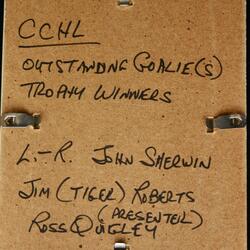 CCHL
OUTSTANDING GOALIE(S)
TROPHY WINNERS
L.-R. JOHN SHERWIN
JIM (TIGER) ROBERTS
(PRESENTER)
ROSS QUIGLEY